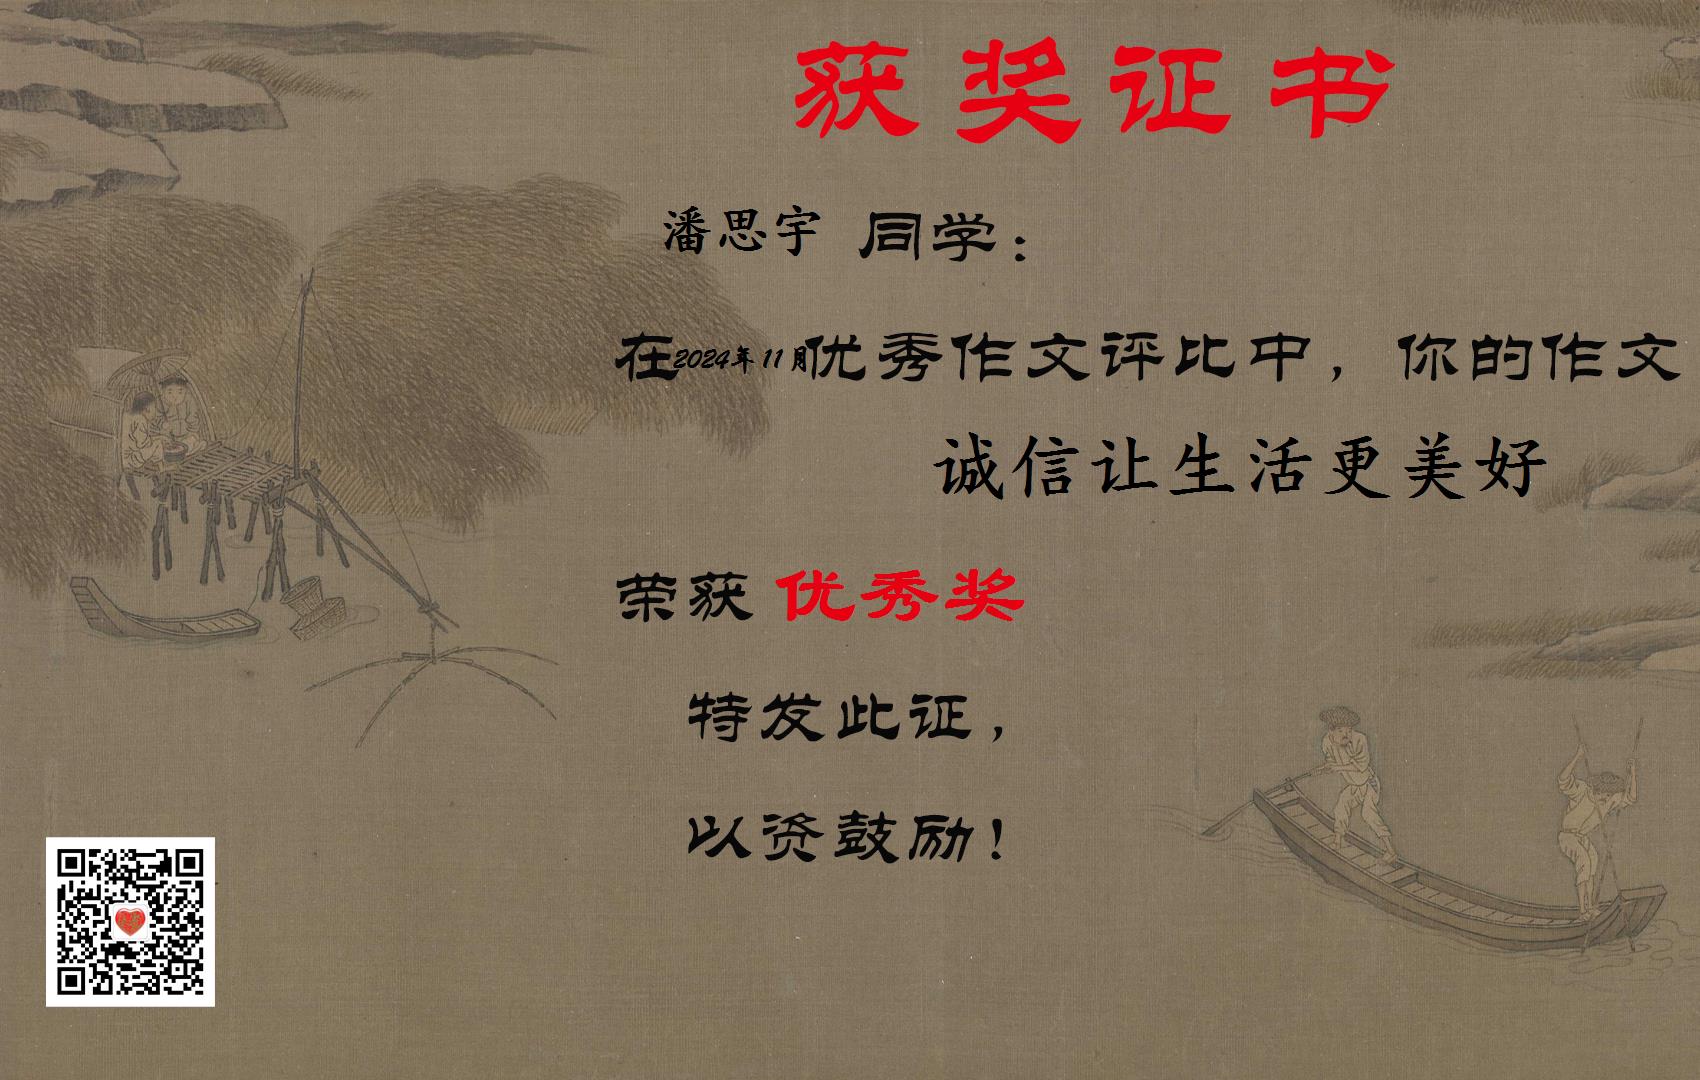 获奖证书
潘思宇 同学：
在2024年11月优秀作文评比中，你的作文
诚信让生活更美好
荣获 优秀奖
特发此证，
以资鼓励！